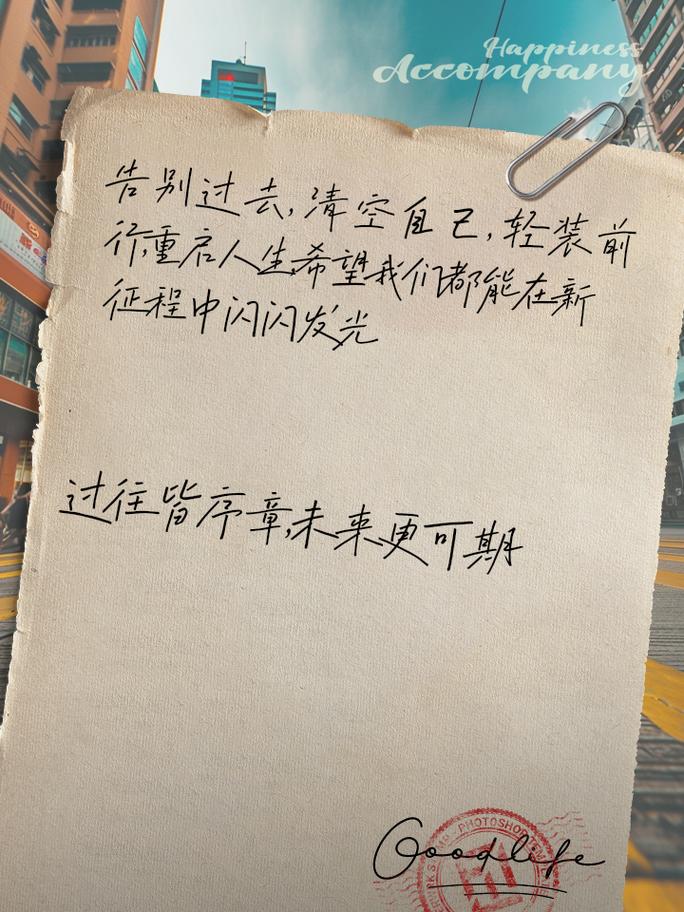 Happiness
Accompany
告别过去,清空自己,轻装前
行,重启人生,希望我们都能在新
征程中闪闪发光
过往皆序章,未来更可期
Goodlife
PHOTOSHOP